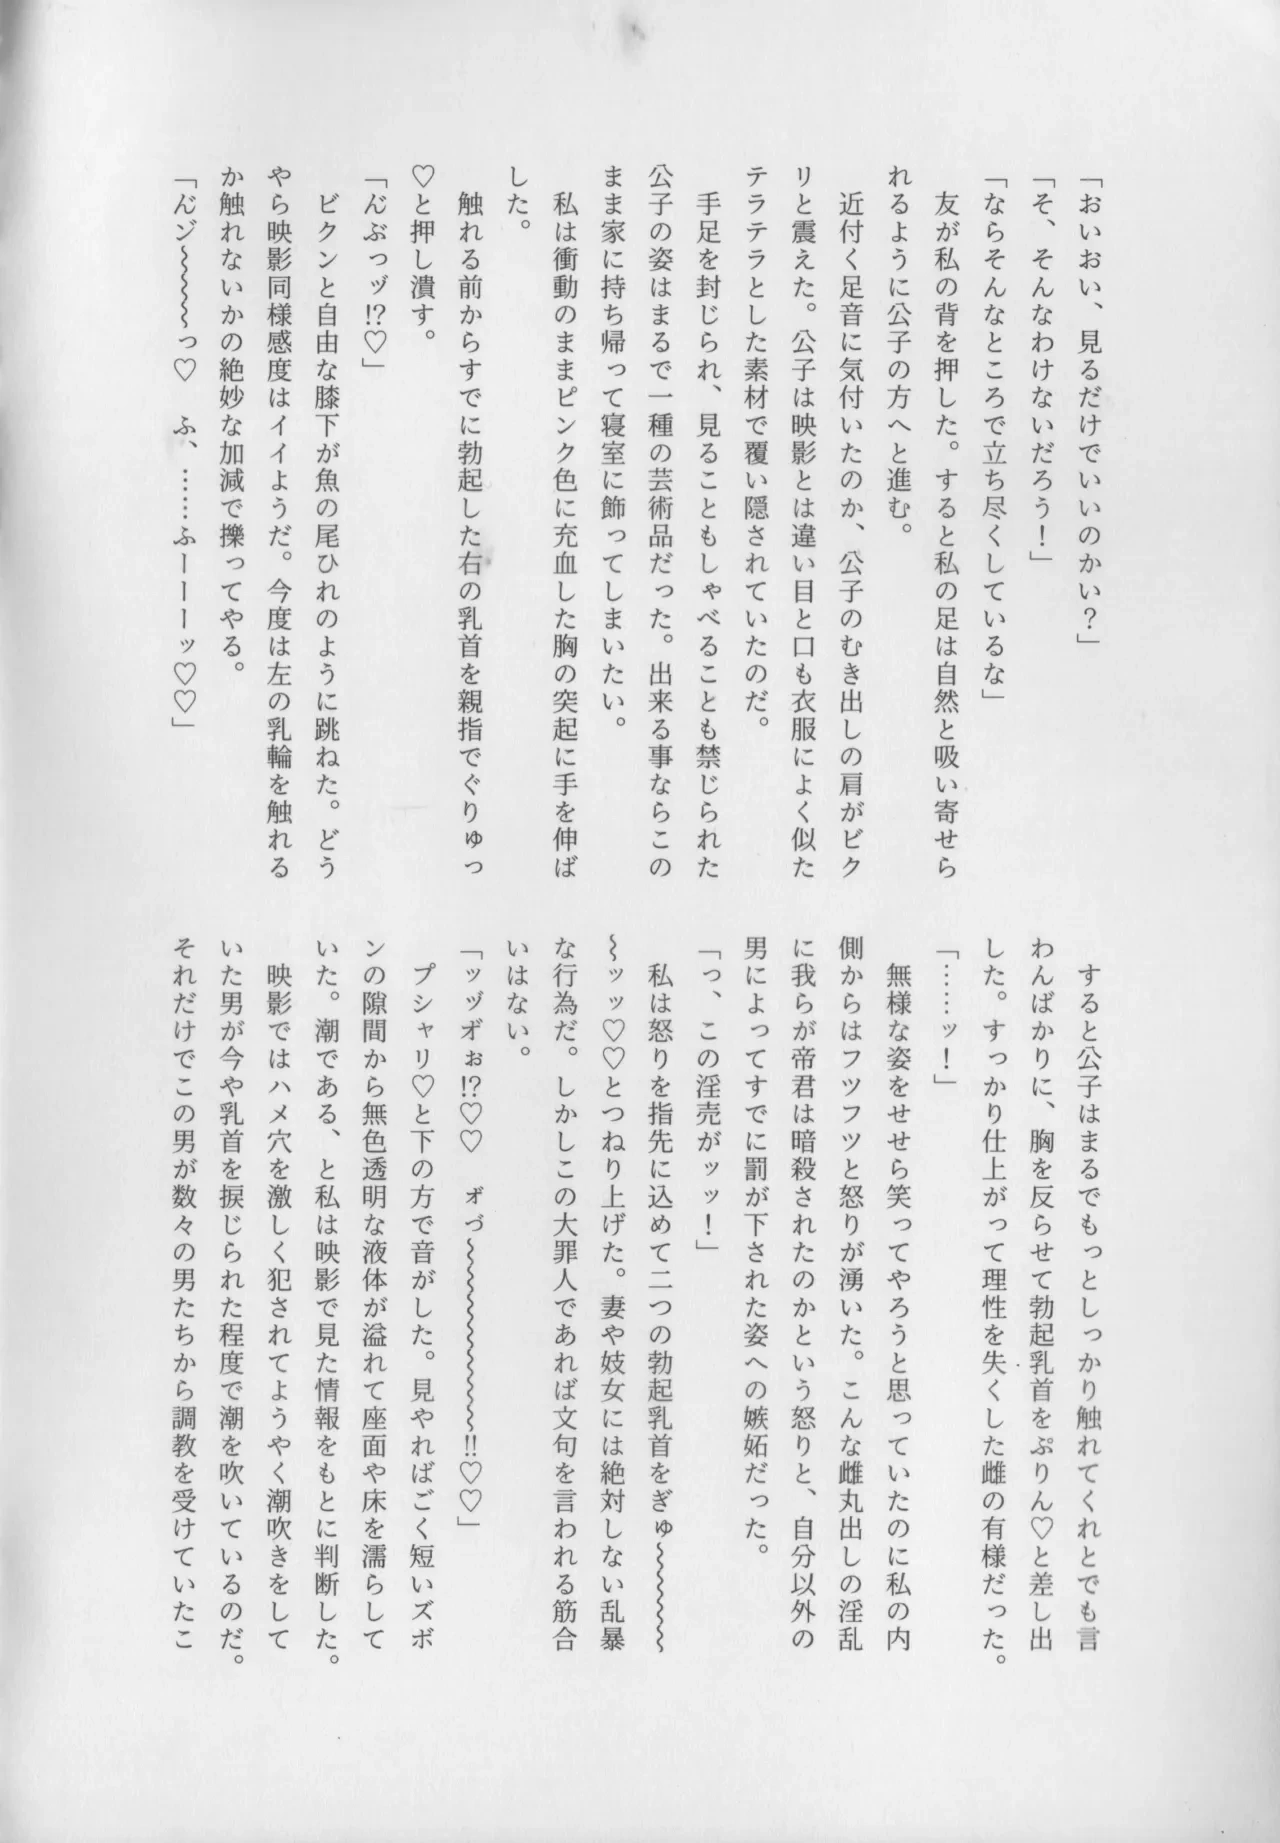 「おいおい、見るだけでいいのかい？」
「そ、そんなわけないだろう！」
「ならそんなところで立ち尽くしているな」
友が私の背を押した。すると私の足は自然と吸い寄せら
れるように公子の方へと進む。
近付く足音に気付いたのか、公子のむき出しの肩がビク
リと震えた。公子は映影とは違い目と口も衣服によく似た
テラテラとした素材で覆い隠されていたのだ。
手足を封じられ、見ることもしゃべることも禁じられた
公子の姿はまるで一種の芸術品だった。出来る事ならこの
まま家に持ち帰って寝室に飾ってしまいたい。
私は衝動のままピンク色に充血した胸の突起に手を伸ば
した。
触れる前からすでに勃起した右の乳首を親指でぐりゅっ
♡と押し潰す。
「ん゛ぶっッ゛⁉♡」
ビクンと自由な膝下が魚の尾ひれのように跳ねた。どう
やら映影同様感度はイイようだ。今度は左の乳輪を触れる
か触れないかの絶妙な加減で擽ってやる。
「ん゛ン゛～～～～っ♡　ふ、……ふーーーッ♡♡」
すると公子はまるでもっとしっかり触れてくれとでも言
わんばかりに、胸を反らせて勃起乳首をぷりん♡と差し出
した。すっかり仕上がって理性を失くした雌の有様だった。
「……ッ！」
無様な姿をせせら笑ってやろうと思っていたのに私の内
側からはフツフツと怒りが湧いた。こんな雌丸出しの淫乱
に我らが帝君は暗殺されたのかという怒りと、自分以外の
男によってすでに罰が下された姿への嫉妬だった。
「っ、この淫売がッッ！」
私は怒りを指先に込めて二つの勃起乳首をぎゅ～～～～
～ッッ♡♡とつねり上げた。妻や妓女には絶対しない乱暴
な行為だ。しかしこの大罪人であれば文句を言われる筋合
いはない。
「ッッ゛オ゛ぉ⁉♡♡　ォ゛っ゛～～～～～～～～‼♡♡」
プシャリ♡と下の方で音がした。見やればごく短いズボ
ンの隙間から無色透明な液体が溢れて座面や床を濡らして
いた。潮である、と私は映影で見た情報をもとに判断した。
映影ではハメ穴を激しく犯されてようやく潮吹きをして
いた男が今や乳首を捩じられた程度で潮を吹いているのだ。
それだけでこの男が数々の男たちから調教を受けていたこ